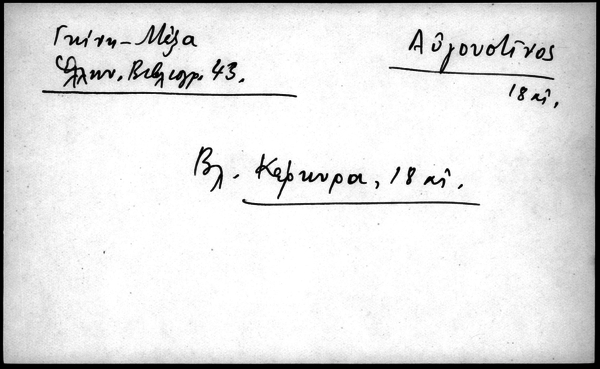 Γκίνη-Μέξα
Ἑλλην. Βιβλιογρ. 43.
Αὐγουστῖνος
18 αἰ.
Βλ. Κέρκυρα, 18 αἰ.